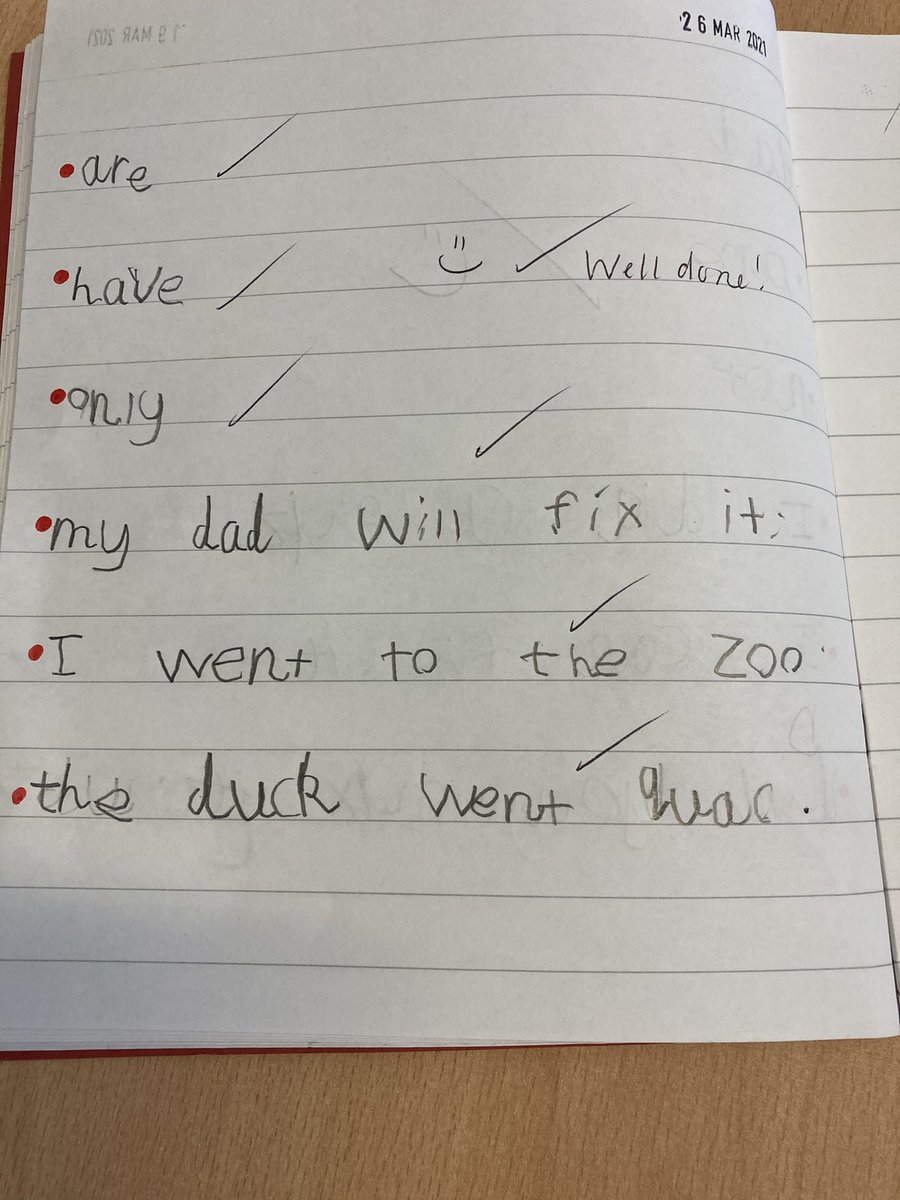 26 MAR 2021
19 MAR 2021
•are
•have
Well done!
•only
•my dad will fix it;
•I went to the zoo.
•the duck went quac.